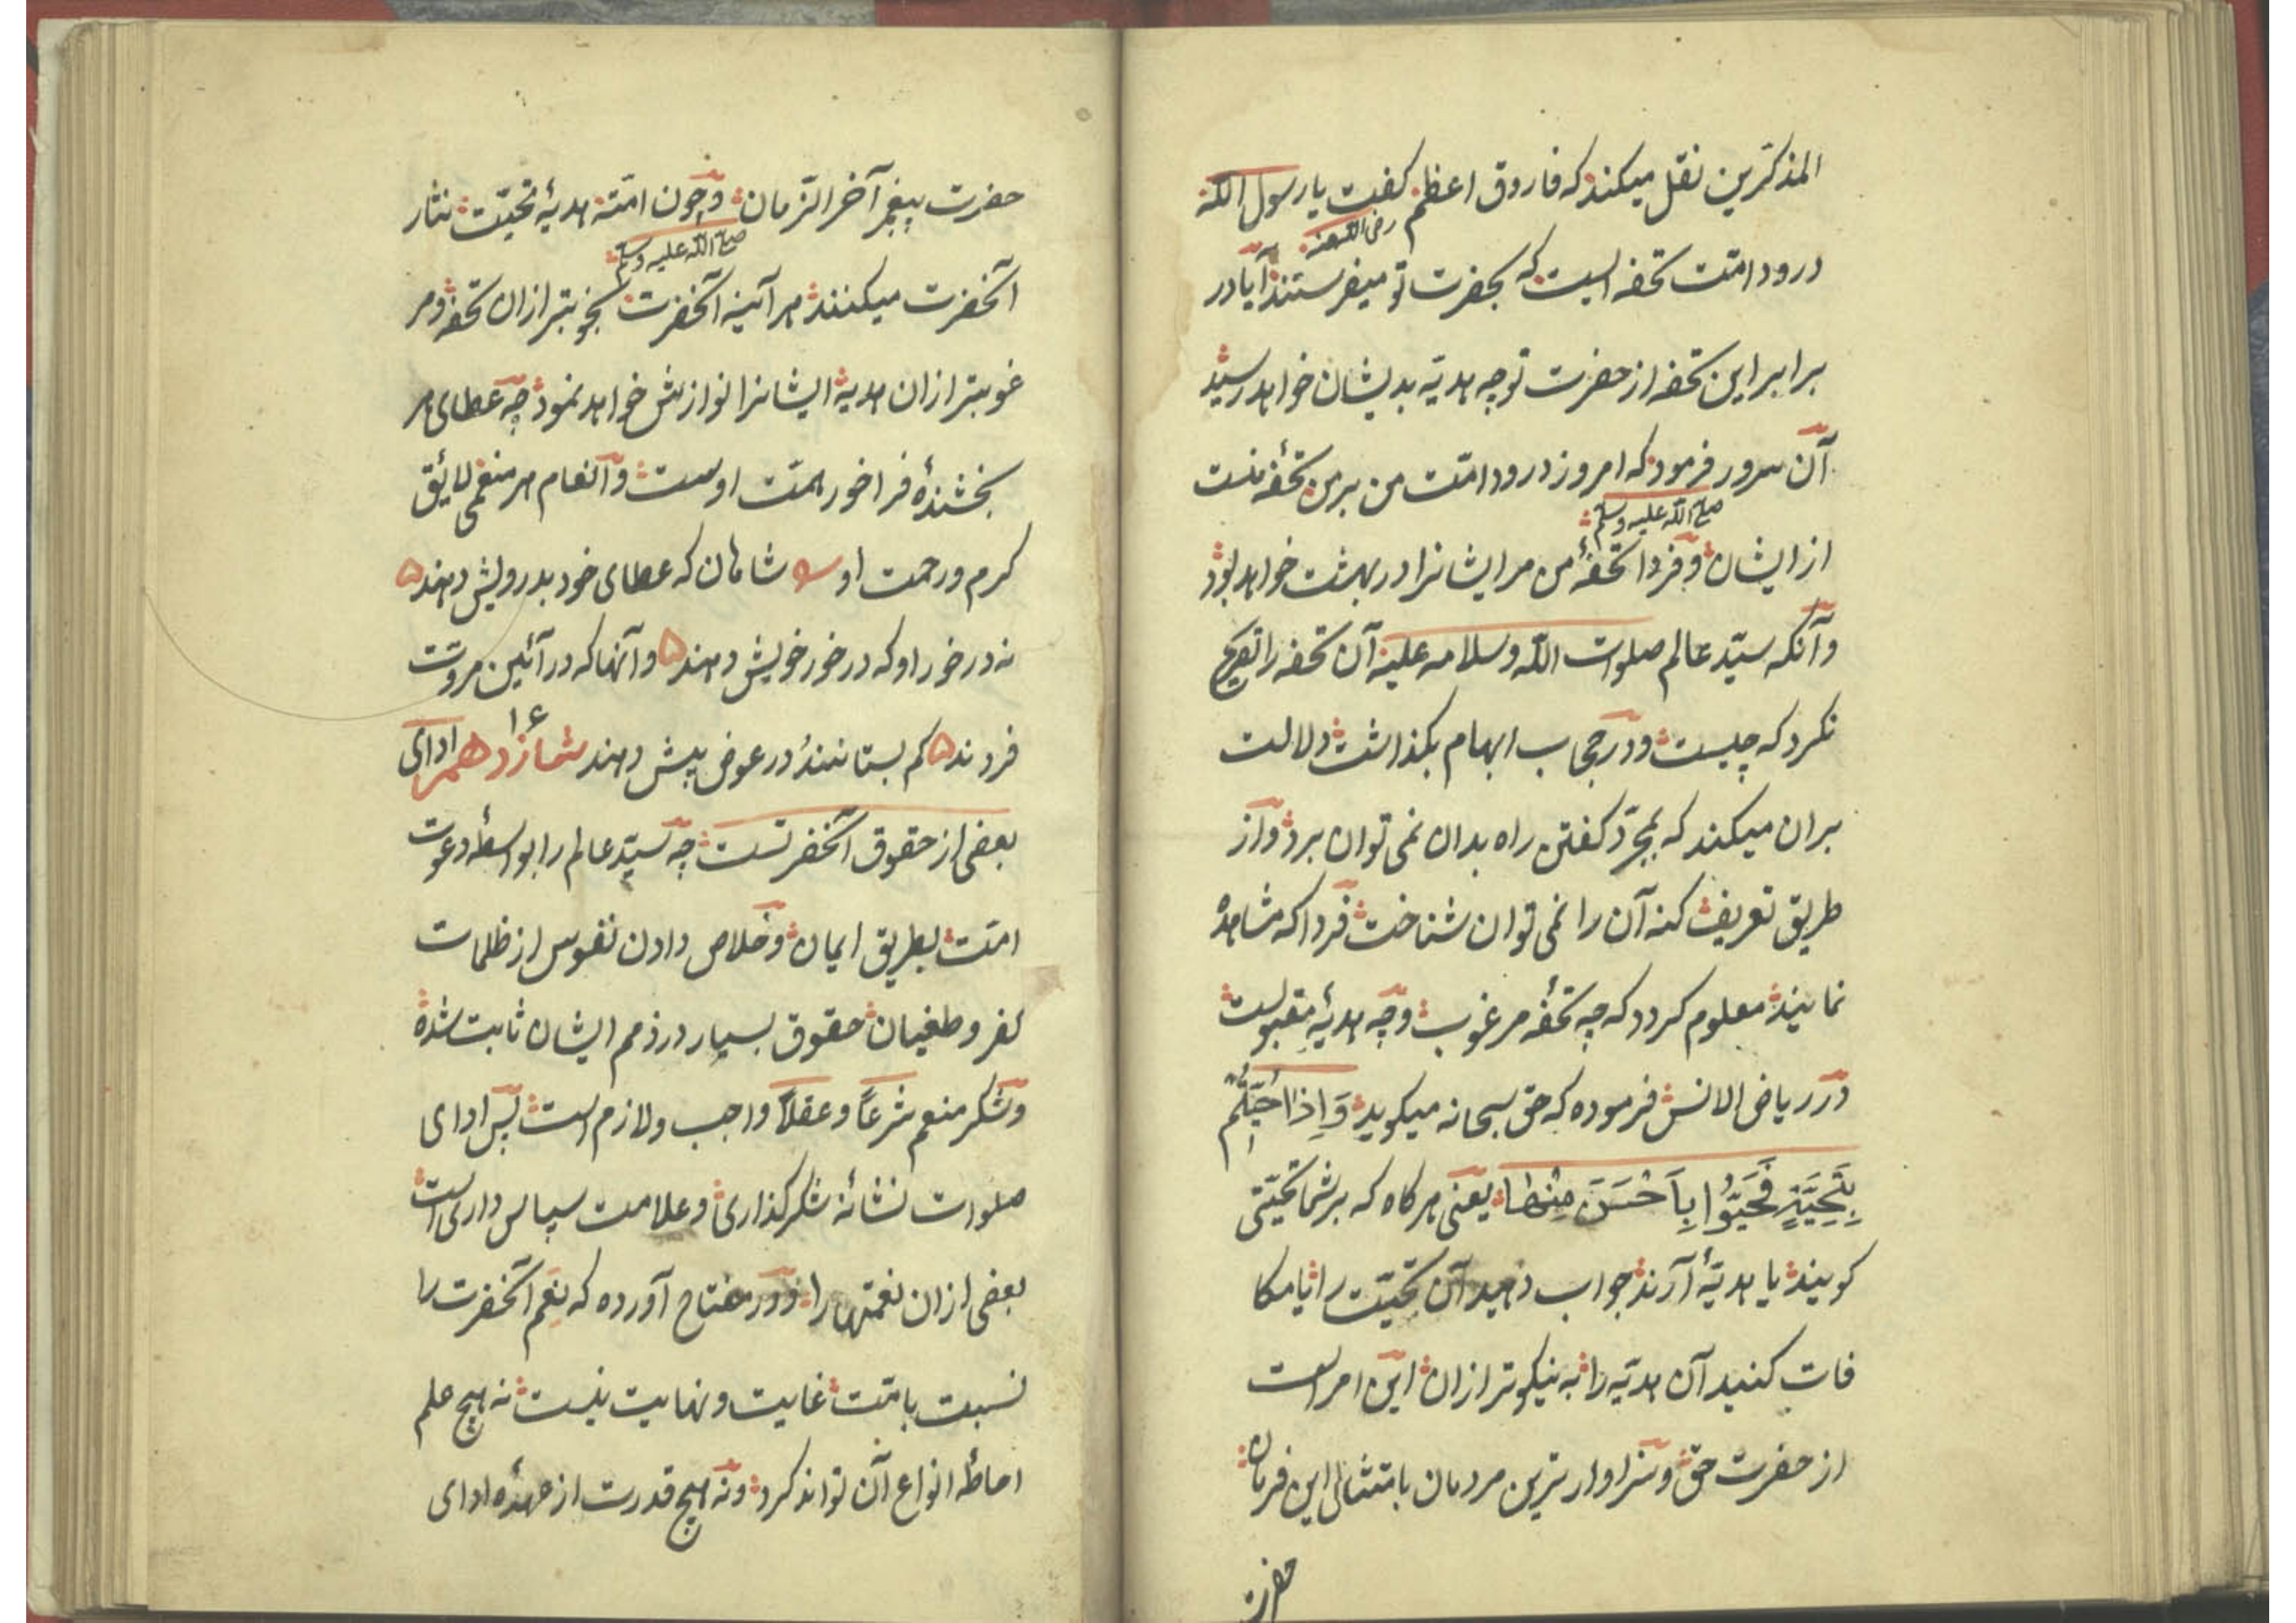 المذکرین نقل میکند که فاروق اعظم کفت یا رسول الله
رضی الله عنه
درود امّت تحفه ایست که بحضرت تو میفرستند آیا در
برابر این تحفه از حضرت تو چه هدیّه بدیشان خواهد رسید
آن سرور فرمود که امروز درود امّت من بر من تحفهٔ منست
صلی الله علیه وسلم
از ایشان و فردا تحفهٔ من مر ایشانرا در بهشت خواهد بود
و آنکه سیّد عالم صلوات الله وسلامه علیه آن تحفه را تصریح
نکرد که چیست و در حجاب ابهام بکذاشت دلالت
بران میکند که بمجرّد کفتن راه بدان نمی توان برد و از
طریق تعریف کنه آن را نمی توان شناخت فردا که مشاهده
نمایند معلوم کردد که چه تحفهٔ مرغوب و چه هدیهٔ مقبولست
در ریاض الانس فرموده که حق سبحانه میکوید وَاِذَا حُیِّیتُم
بِتَحِیَّةٍ فَحَیُّوا بِاَحْسَنَ مِنْهَا یعنی هرکاه که بر شما تحیّتی
کویند یا هدیّهٔ آرند جواب دهید آن تحیّت را یا مکا
فات کنید آن هدیّه را به نیکوتر ازان این امر است
از حضرت حق و سزاوار ترین مردمان بامتثال این فرمان
حضرت
حضرت پیغمبر آخر الزّمان و چون امّت هدیهٔ تحیّت نثار
صلی الله علیه وسلم
آنحضرت میکنند هر آئینه آنحضرت بخوبتر ازان تحفه و مر
غوبتر ازان هدیه ایشانرا نوازش خواهد نمود چه عطای هر
بخشندهٔ فراخور همّت اوست و انعام هر منعمی لایق
کرم و رحمت او شاهان که عطای خود بدرویش دهند
نه در خور او که در خور خویش دهند وآنها که در آئین مروّت
فردند کم بستانند در عوض بیش دهند شانزدهم ۱۶ ادای
بعضی از حقوق آنحضرتست چه سیّد عالم را بواسطهٔ دعوت
امّت بطریق ایمان و خلاص دادن نفوس از ظلمات
کفر و طغیان حقوق بسیار در ذمم ایشان ثابت شده
و شکر منعم شرعاً و عقلاً واجب و لازم است پس ادای
صلوات نشانهٔ شکرکذاری و علامت سپاس داری است
بعضی ازان نعمتها را و در مفتاح آورده که نِعَم آنحضرت را
نسبت بامّت غایت و نهایت نیست نه هیچ علم
احاطهٔ انواع آن تواند کرد و نه هیچ قدرت از عهدهٔ ادای